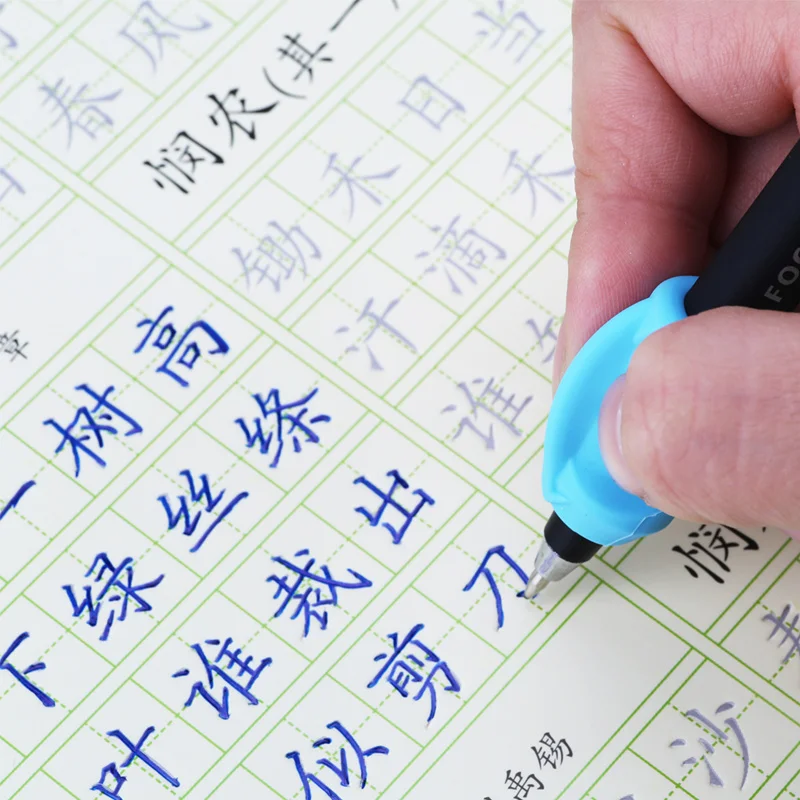 春风
悯农(其一
锄禾日当
汗滴禾
谁
章
一树高
下绿丝绦
叶谁裁出
似剪刀
悯
春
禹锡
沙
FOO